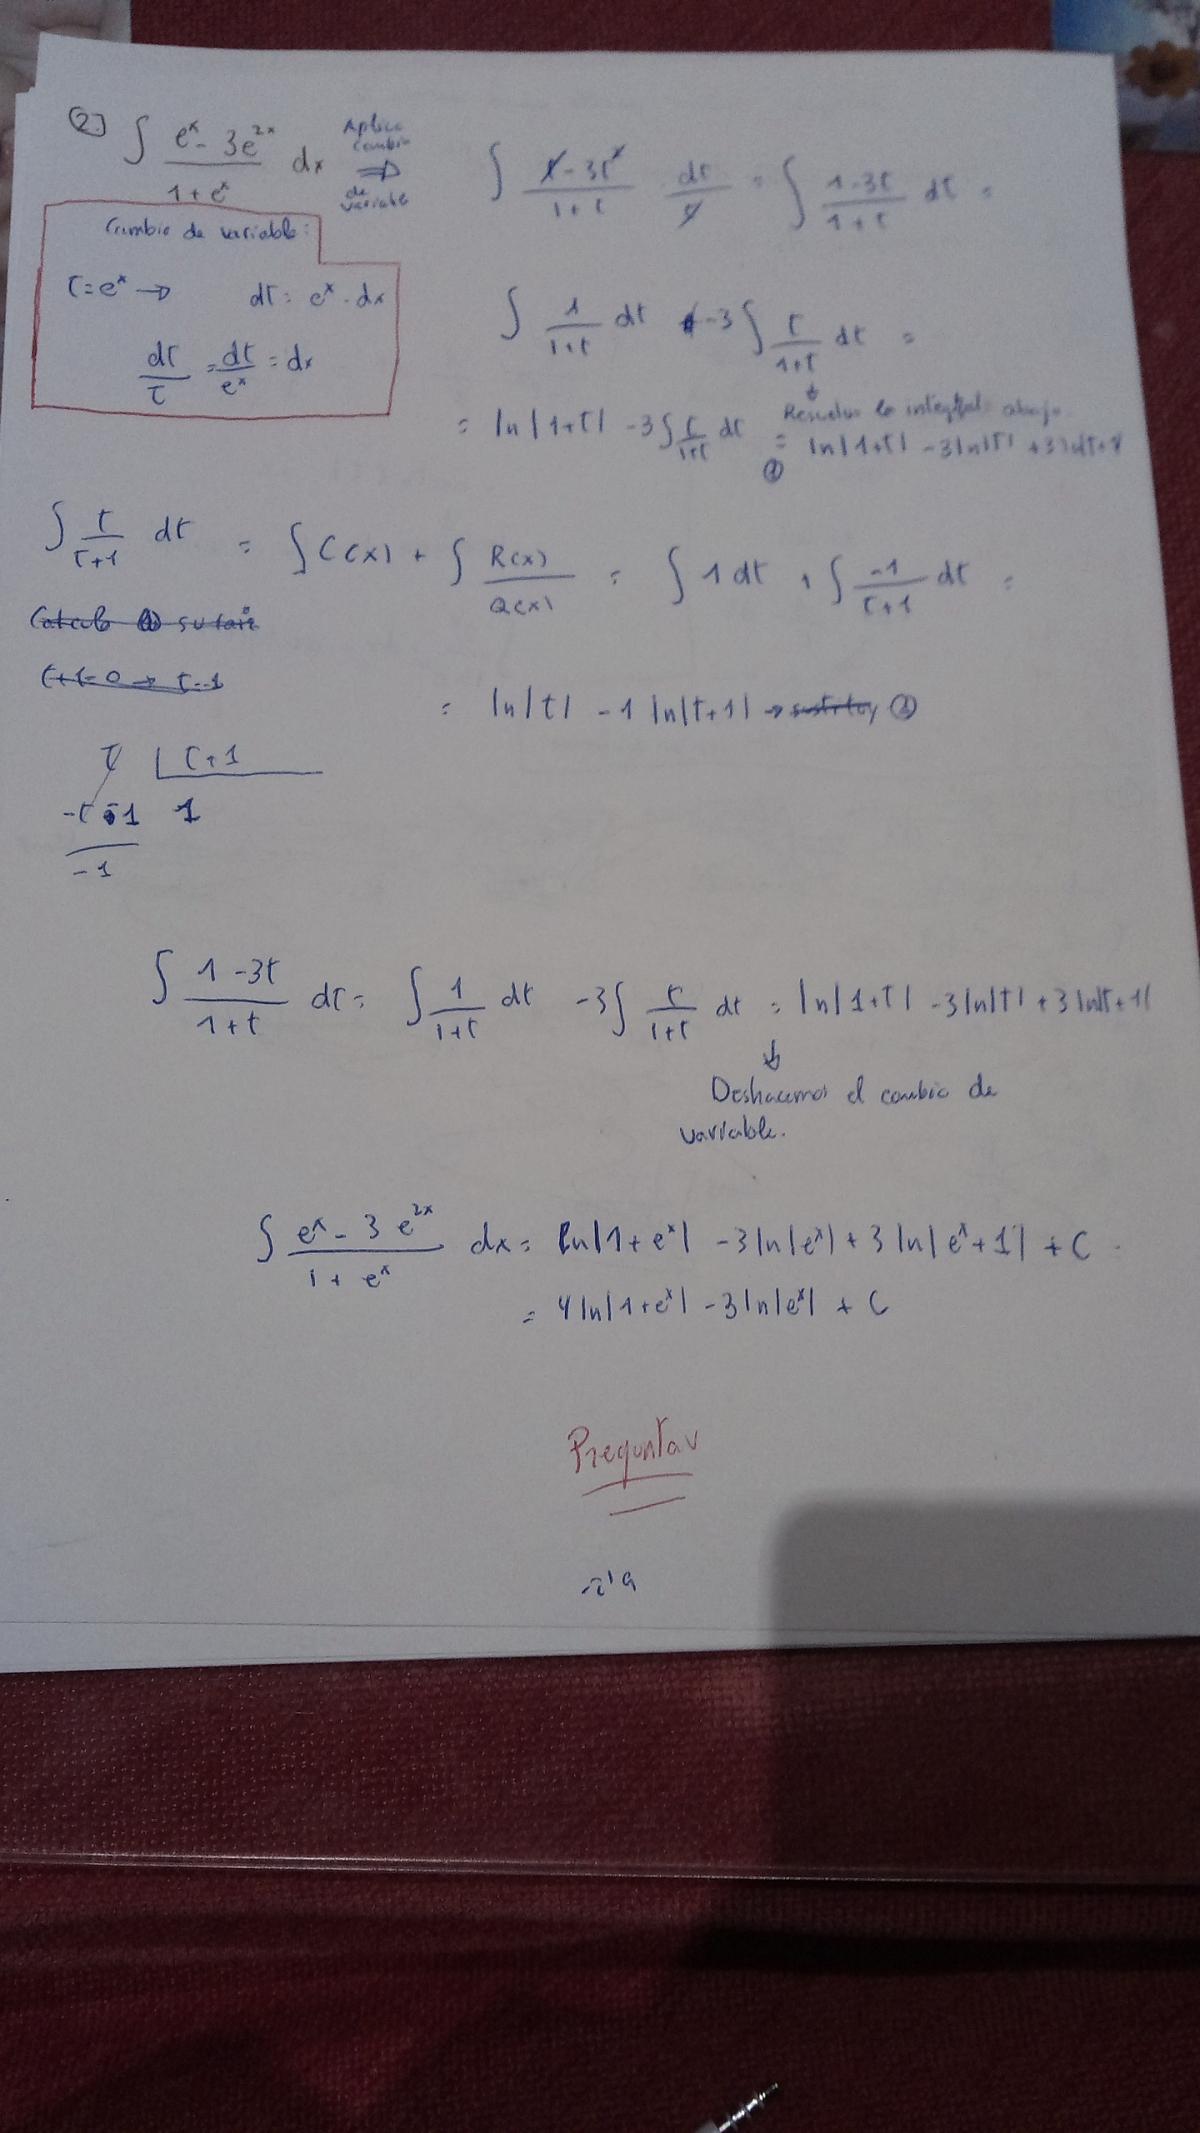 2) ∫ (e^x - 3e^2x)/(1+e^x) dx Aplico cambio de variable ⇒ ∫ (t - 3t^2)/(1+t) dt/t = ∫ (1-3t)/(1+t) dt =
Cambio de variable:
t=e^x → dt = e^x · dx
dt/t = dt/e^x = dx
∫ 1/(1+t) dt -3 ∫ t/(1+t) dt =
= ln|1+t| -3∫ t/(1+t) dt = ln|1+t| -3ln|t| +3
∫ t/(t+1) dt = ∫ C(x) + ∫ R(x)/Q(x) = ∫ 1 dt + ∫ -1/(t+1) dt =
= ln|t| - 1 ln|t+1| →
t | t+1
-t -1 1
-1
∫ (1-3t)/(1+t) dt = ∫ 1/(1+t) dt -3∫ t/(1+t) dt = ln|1+t| -3ln|t| +3ln|t+1|
Deshacemos el cambio de
variable.
∫ (e^x - 3e^2x)/(1+e^x) dx = ln|1+e^x| -3ln|e^x| +3 ln|e^x+1| + C
= 4ln|1+e^x| -3ln|e^x| + C
Preguntar